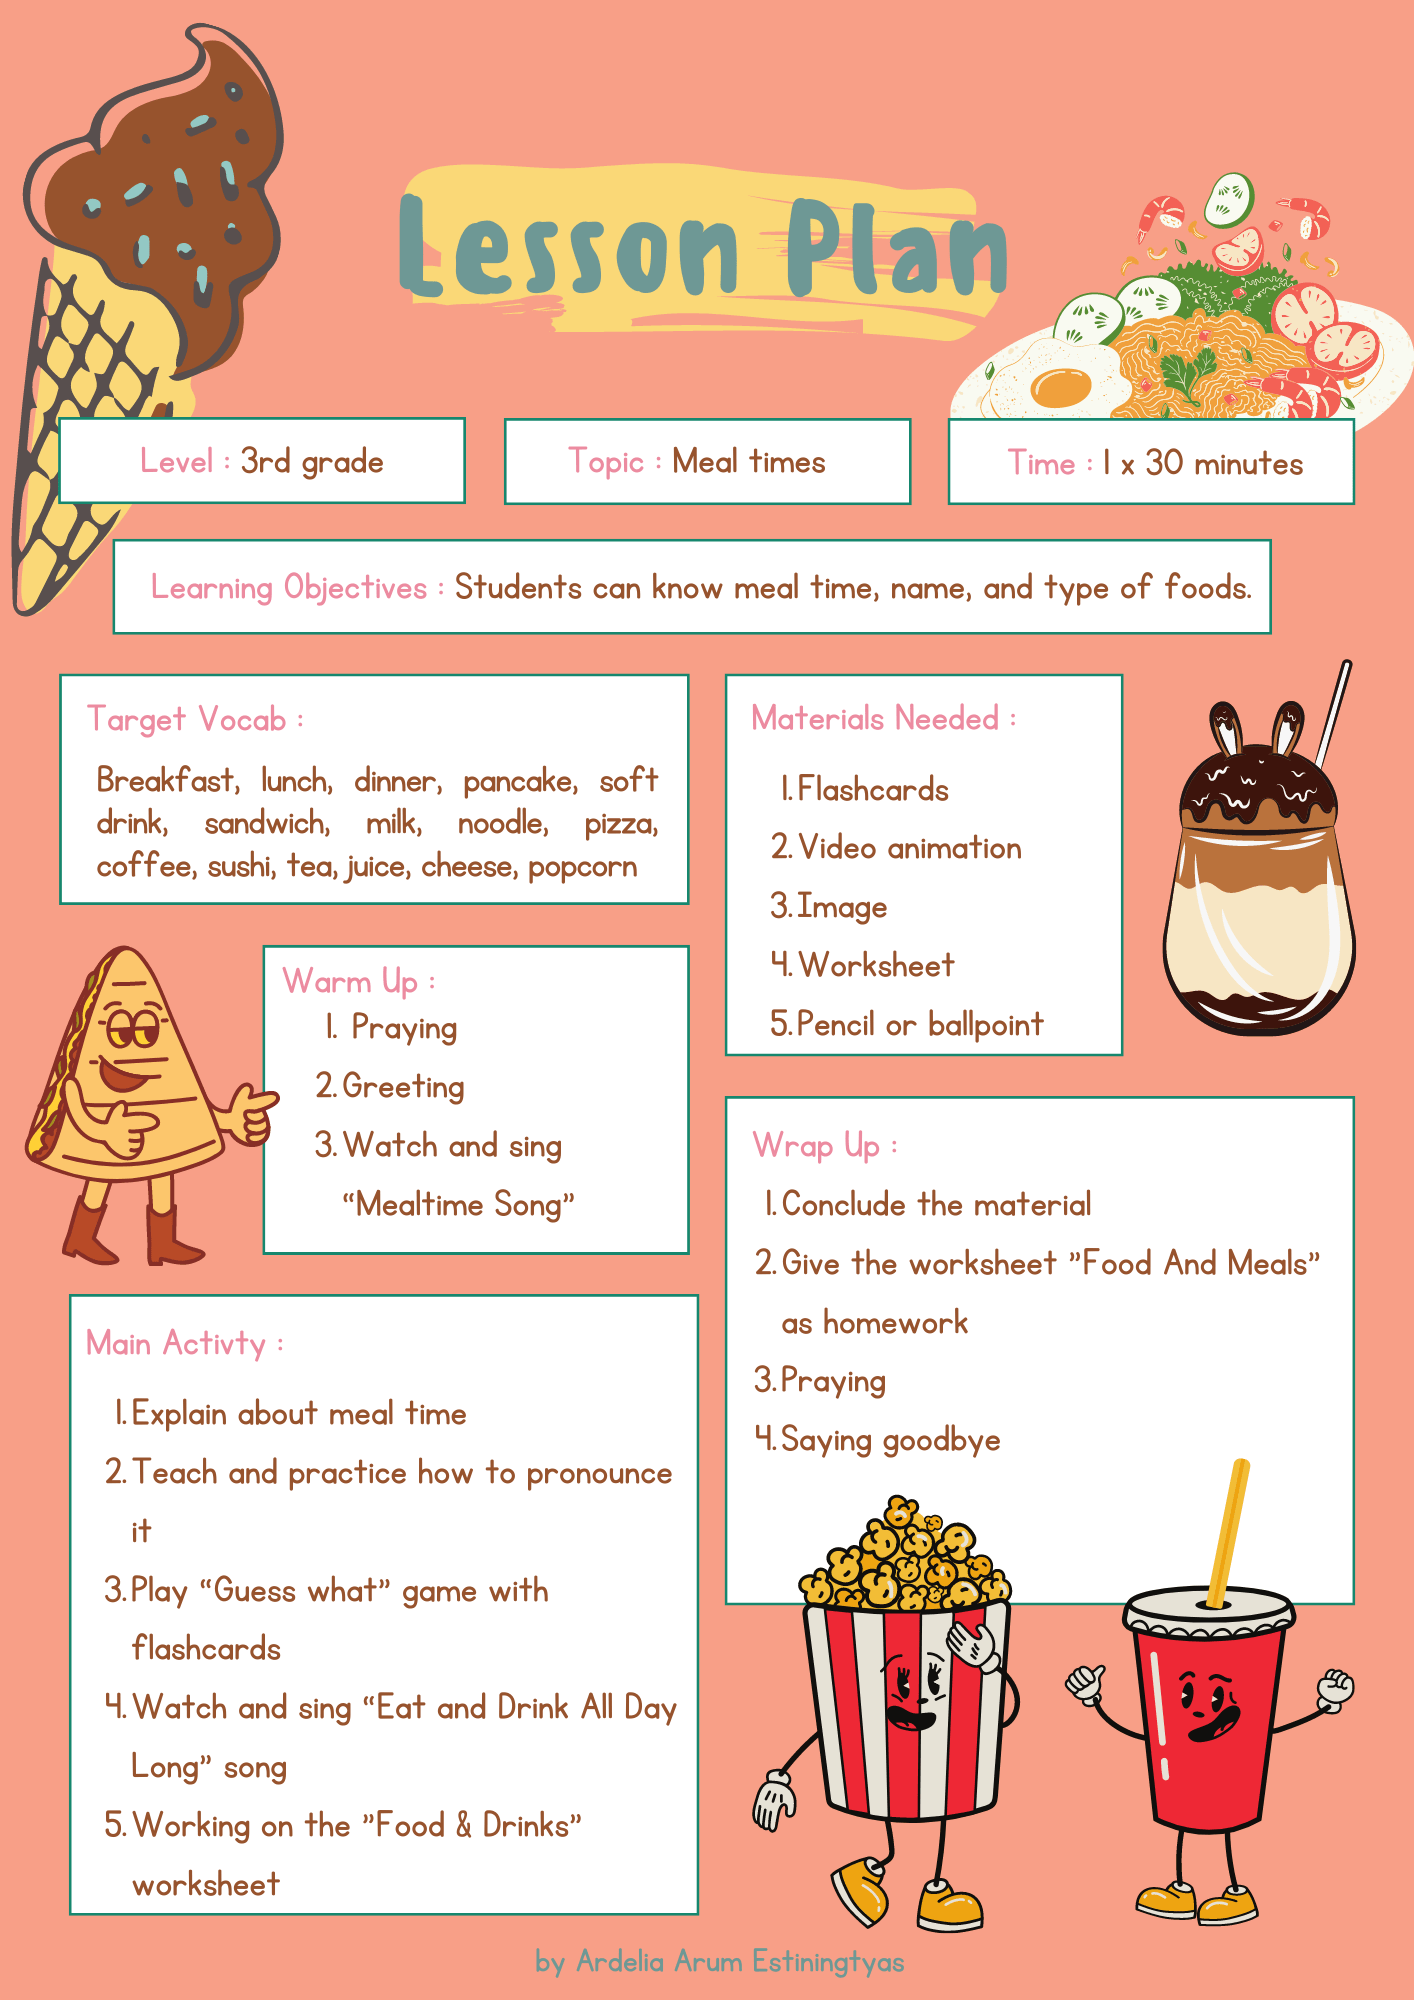 Lesson Plan
Level : 3rd grade
Topic : Meal times
Time : 1 x 30 minutes
Learning Objectives : Students can know meal time, name, and type of foods.
Target Vocab :
Breakfast, lunch, dinner, pancake, soft
drink, sandwich, milk, noodle, pizza,
coffee, sushi, tea, juice, cheese, popcorn
Materials Needed :
1. Flashcards
2. Video animation
3. Image
4. Worksheet
5. Pencil or ballpoint
Warm Up :
1. Praying
2. Greeting
3. Watch and sing
“Mealtime Song”
Wrap Up :
1. Conclude the material
2. Give the worksheet ”Food And Meals”
as homework
3. Praying
4. Saying goodbye
Main Activty :
1. Explain about meal time
2. Teach and practice how to pronounce
it
3. Play “Guess what” game with
flashcards
4. Watch and sing “Eat and Drink All Day
Long” song
5. Working on the ”Food & Drinks”
worksheet
by Ardelia Arum Estiningtyas